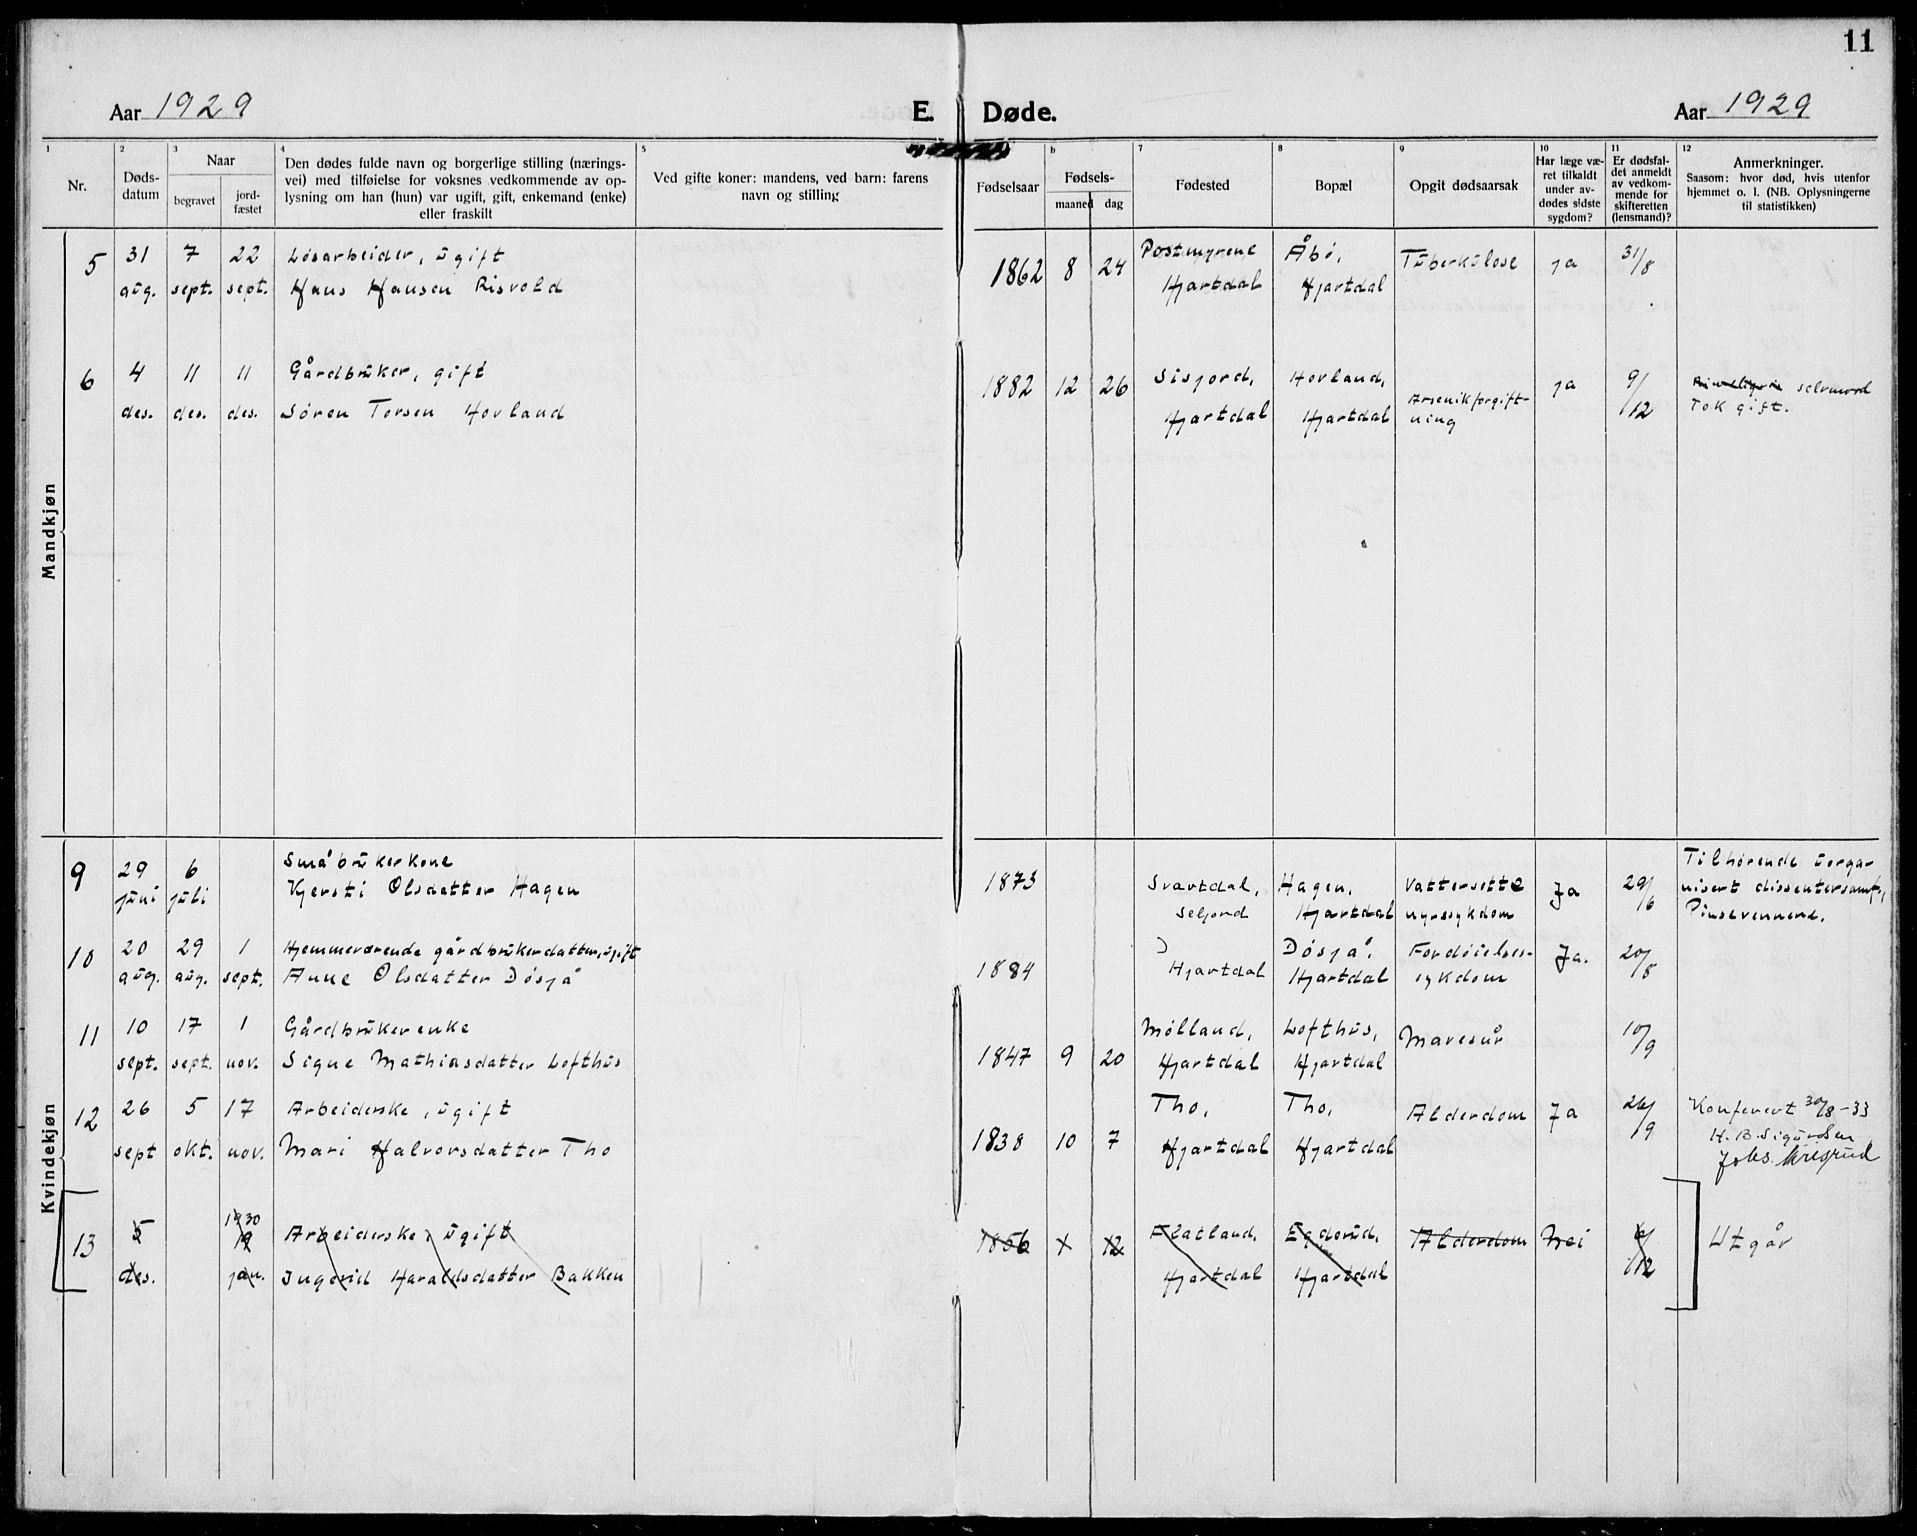 11
Aar 1929 E. Døde. Aar 1929
1 2 3 4 5 6 7 8 9 10 11 12
Nr.
Døds-
datum
Naar
begravet
jord-
fæstet
Den dødes fulde navn og borgerlige stilling (nærings-
vei) med tilføielse for voksnes vedkommende av op-
lysning om han (hun) var ugift, gift, enkemand (enke)
eller fraskilt
Ved gifte koner: mandens, ved barn: farens
navn og stilling
Fødselsaar
Fødsels-
maaned dag
Fødested
Bopæl
Opgit dødsaarsak
Har læge væ-
ret tilkaldt
under av-
dødes sidste
sygdom?
Er dødsfal-
det anmeldt
av vedkom-
mende for
skifteretten
(lensmand)?
Anmerkninger.
Saasom: hvor død, hvis utenfor
hjemmet o. l. (NB. Oplysningerne
til statistikken)
Mandkjøn
5 31 7 22 Løsarbeider, ugift 1862 8 24 Postmyrene Åbø, Tuberkulose ja 31/8
aug. sept. sept. Hans Hansen Risvold Hjartdal Hjartdal
6 4 11 11 Gårdbruker, gift 1882 12 26 Sisjord, Hovland, Arsenikforgift- ja 9/12 selvmord
des. des. des. Søren Torsen Hovland Hjartdal Hjartdal ning Tok gift.
Kvindekjøn
9 29 6 Småbrukerkone 1873 Svartdal, Hagen, Vattersotte Ja 29/6 Tilhørende uorga-
juni juli Kjersti Olsdatter Hagen Seljord Hjartdal nyresykdom nisert dissentersamf.,
Pinsevennene.
10 20 29 1 Hjemmeværende gårdbrukerdatter, ugift 1884 Døsjå, Fordøielses- Ja. 20/8
aug. aug. sept. Anne Olsdatter Døsjå Hjartdal Hjartdal sykdom
11 10 17 1 Gårdbrukerenke 1847 9 20 Mølland, Lofthus, Mavesår 10/9
sept. sept. nov. Signe Mathiasdatter Lofthus Hjartdal Hjartdal
12 26 5 17 Arbeiderske, ugift 1838 10 7 Tho, Tho, Alderdom Ja 26/9 Konferert 30/8-33
sept okt. nov. Mari Halvorsdatter Tho Hjartdal Hjartdal H. B. Sigurdsen
Johs.
13 5 1930 19 Arbeiderske, ugift 1856 x 12 Flatland, Egderud, Alderdom Nei 6/12 Utgår
des. jan. Ingerid Haraldsdatter Bakken Hjartdal Hjartdal